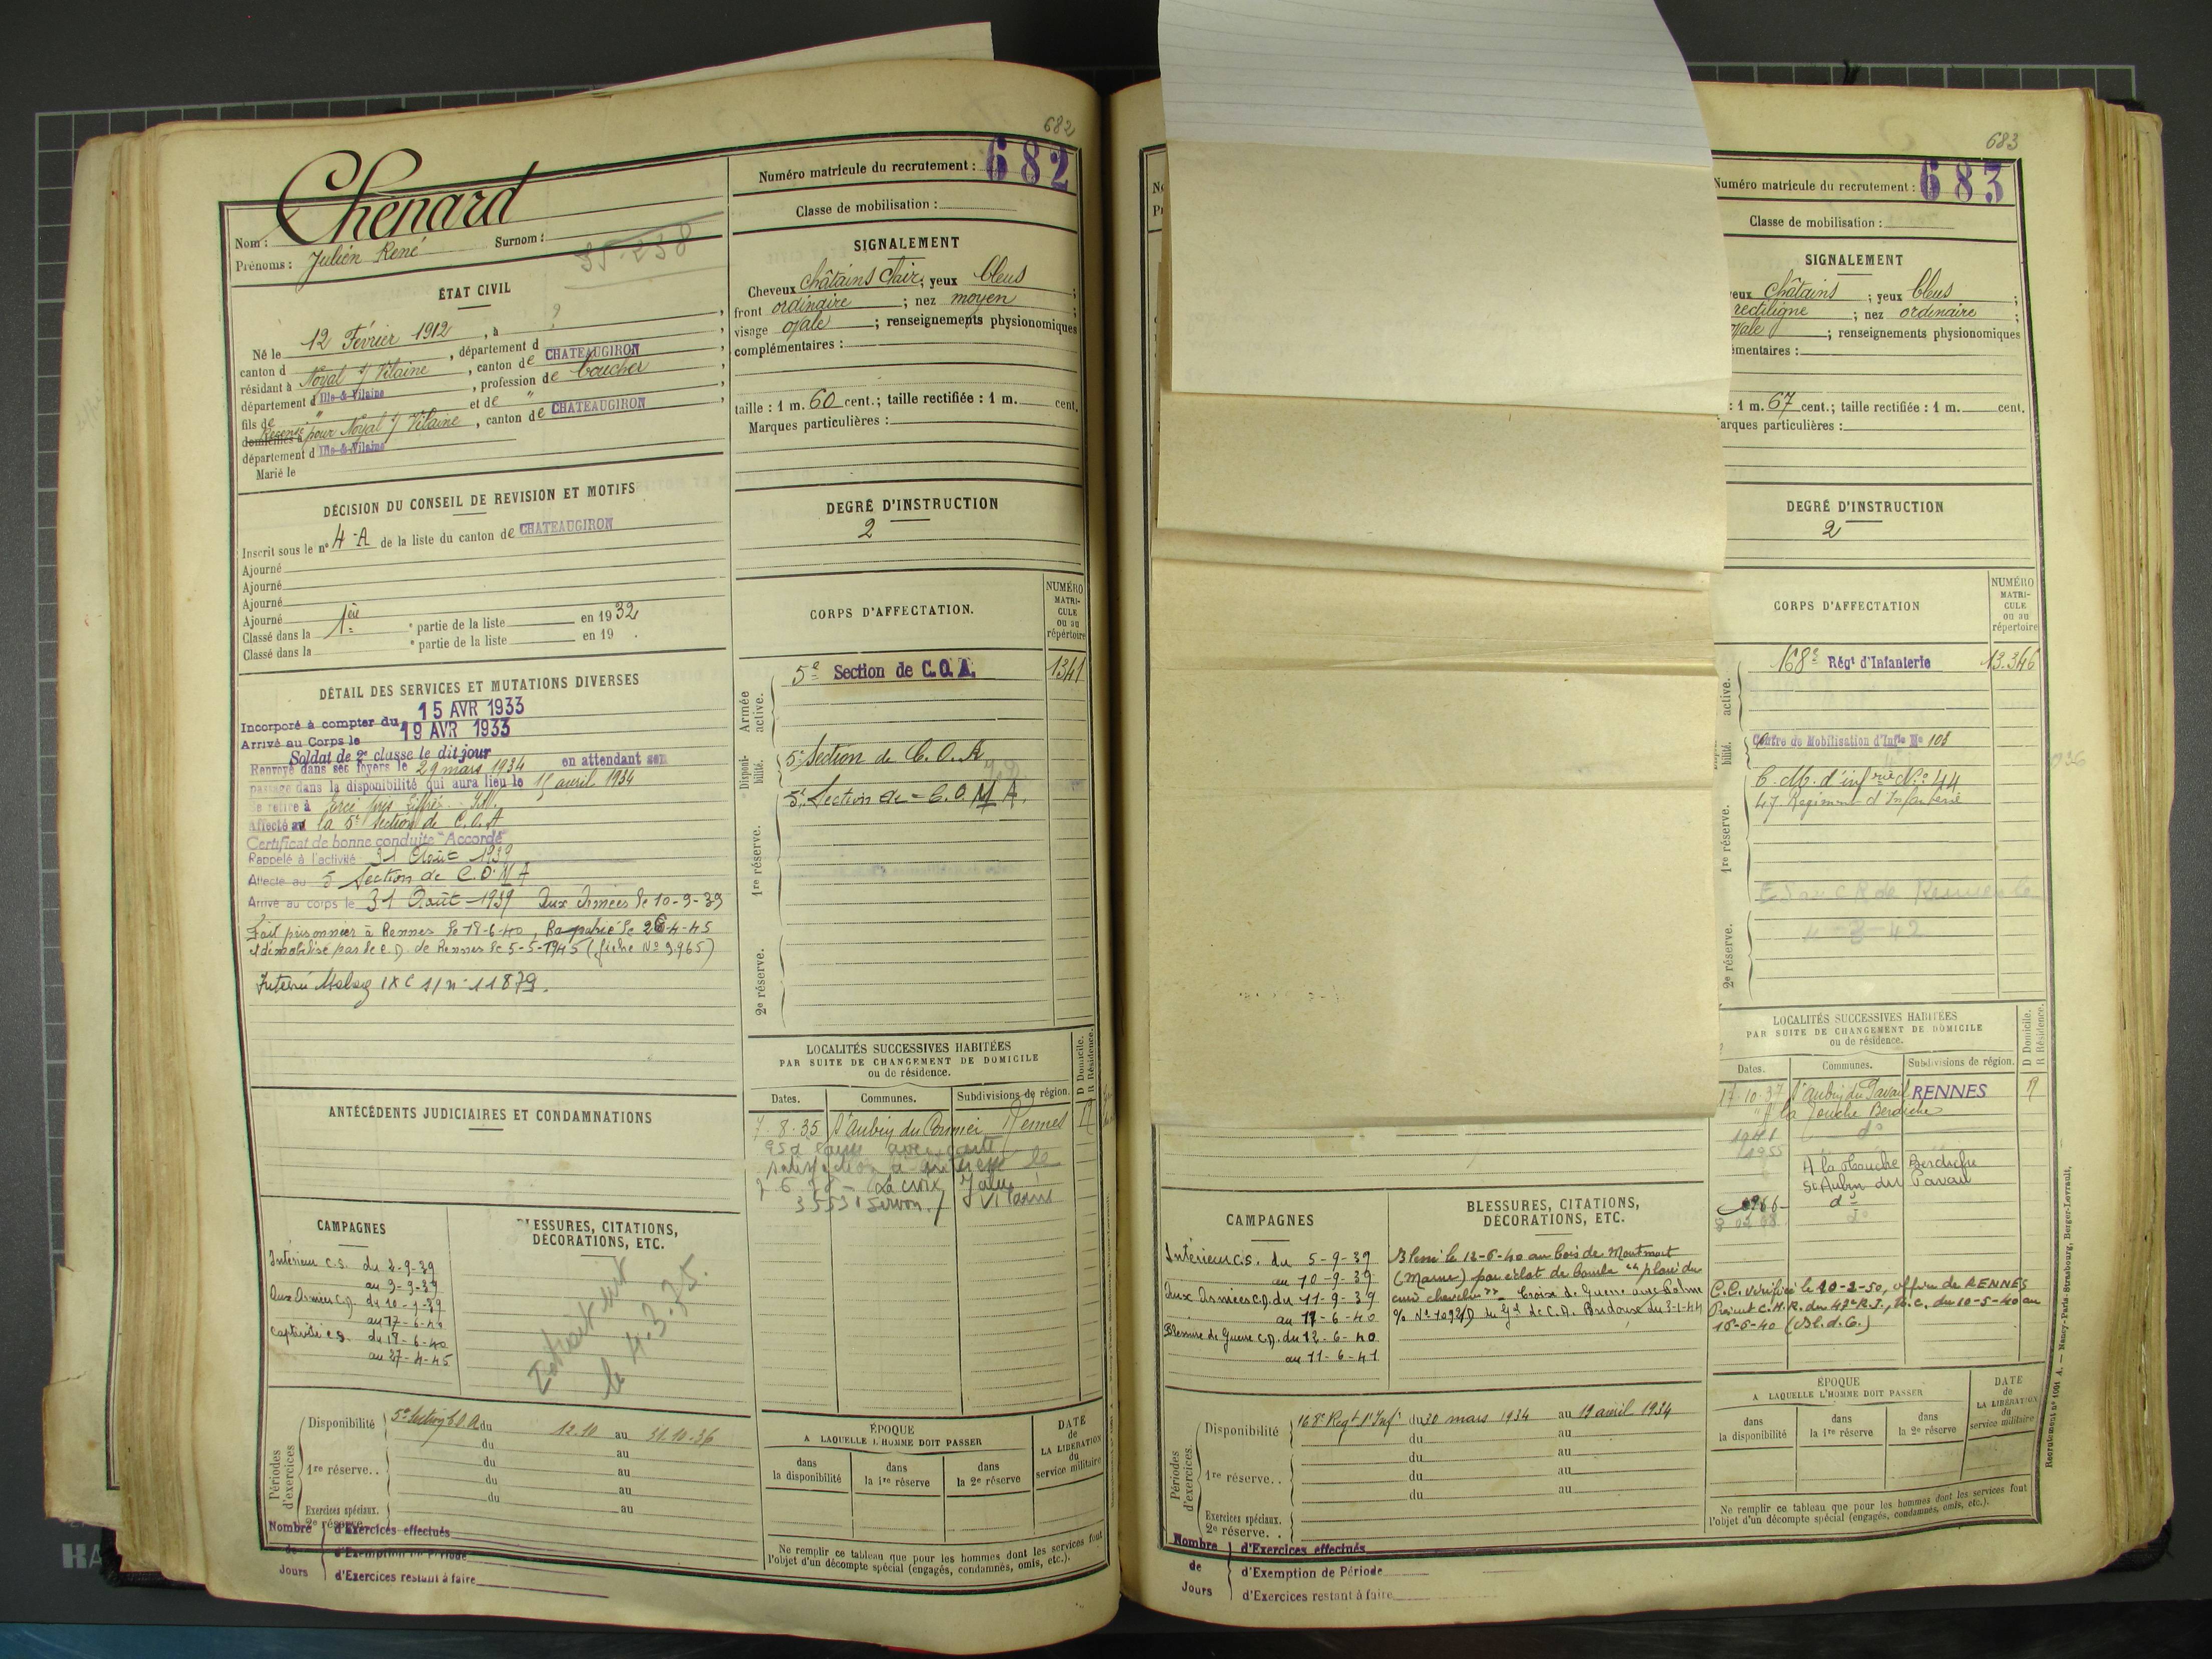 682
Chenard
Nom :
Prénoms : Julien René Surnom :
35-238
ÉTAT CIVIL
Né le 12 Février 1912, à ?
canton d , département d
résidant à Noyal s/ Vilaine, canton de CHATEAUGIRON
département d Ille-&-Vilaine, profession de boucher
fils de " et de "
domiciliés à Recensé pour Noyal s/ Vilaine, canton de CHATEAUGIRON
département d Ille-&-Vilaine
Marié le
DÉCISION DU CONSEIL DE REVISION ET MOTIFS
Inscrit sous le n° 4-A de la liste du canton de CHATEAUGIRON
Ajourné
Ajourné
Ajourné
Ajourné
Classé dans la 1ère partie de la liste en 1932
Classé dans la e partie de la liste en 19 .
DÉTAIL DES SERVICES ET MUTATIONS DIVERSES
Incorporé à compter du 15 AVR 1933
Arrivé au Corps le 19 AVR 1933
Soldat de 2e classe le dit jour
Renvoyé dans ses foyers le 29 mars 1934 en attendant son
passage dans la disponibilité qui aura lieu le 15 avril 1934
se retire à
Affecté au la 5e Section de C.O.A
Certificat de bonne conduite "Accordé"
Rappelé à l'activité 31 Août 1939
Affecté au 5 Section de C.O.M.A
Arrivé au corps le 31 Août 1939 Aux Armées le 10-9-39
Fait prisonnier à Rennes le 18-6-40, Rapatrié le 26-4-45
et démobilisé par le C.D. de Rennes le 5-5-1945 (fiche No 9.965)
Interné Stalag IX C s/n° 11879.
ANTÉCÉDENTS JUDICIAIRES ET CONDAMNATIONS
CAMPAGNES
Intérieur C.S. du 2-9-39
au 9-9-39
Aux Armées C.D. du 10-9-39
au 17-6-40
Captivité C.S. du 18-6-40
au 27-4-45
BLESSURES, CITATIONS,
DÉCORATIONS, ETC.
Extrait
le 4.3.75.
Périodes d'exercices
Disponibilité 5e Section C.O.A du 12.10 au 31.10.36
du au
1re réserve. . du au
du au
du au
Exercices spéciaux.
2e réserve
Nombre de Jours
d'Exercices effectués
d'Exemption de Période
d'Exercices restant à faire
Numéro matricule du recrutement : 682
Classe de mobilisation :
SIGNALEMENT
Cheveux châtains clair; yeux bleus ;
front ordinaire ; nez moyen ;
visage ovale ; renseignements physionomiques
complémentaires :
taille : 1 m. 60 cent.; taille rectifiée : 1 m. cent.
Marques particulières :
DEGRÉ D'INSTRUCTION
2
CORPS D'AFFECTATION.
NUMÉRO MATRI-CULE ou au répertoire
Armée active.
5e Section de C.O.A. 1341
Disponibilité.
5e Section de C.O.A
1re réserve.
5e Section de C.O.M.A.
2e réserve.
LOCALITÉS SUCCESSIVES HABITÉES
PAR SUITE DE CHANGEMENT DE DOMICILE
ou de résidence.
D Domicile.
R Résidence.
Dates. Communes. Subdivisions de région.
7-8-35 St Aubin du Cormier Rennes R
La croix
35531 Servon s/ Vilaine
ÉPOQUE
A LAQUELLE L'HOMME DOIT PASSER
dans la disponibilité
dans la 1re réserve
dans la 2e réserve
DATE de LA LIBÉRATION du service militaire
Ne remplir ce tableau que pour les hommes dont les services font
l'objet d'un décompte spécial (engagés, condamnés, omis, etc.).
683
Numéro matricule du recrutement : 683
Classe de mobilisation :
SIGNALEMENT
châtains ; yeux bleus ;
rectiligne ; nez ordinaire ;
ovale ; renseignements physionomiques
: 1 m. 67 cent.; taille rectifiée : 1 m. cent.
arques particulières :
DEGRÉ D'INSTRUCTION
2
CORPS D'AFFECTATION
NUMÉRO MATRI-CULE ou au répertoire
active.
168e Régt d'Infanterie 13.346
Centre de Mobilisation d'Infie No 103
C. M. d'infrie No 44
47 Regiment d'Infanterie
1re réserve.
2e réserve.
4-3-42
LOCALITÉS SUCCESSIVES HABITÉES
PAR SUITE DE CHANGEMENT DE DOMICILE
ou de résidence.
D Domicile.
R Résidence.
Dates. Communes. Subdivisions de région.
17-10-37 St Aubin du Pavail RENNES R
la Touche Berdiche
1941 do
1955 A la Touche Berdiche
St Aubin du Pavail
1966 do
C.C. vérifié le 20-2-50, officier de RENNES
CAMPAGNES
Intérieur C.S. du 5-9-39
au 10-9-39
Aux Armées C.D. du 11-9-39
au 11-6-40
Blessure de Guerre C.D. du 12-6-40
au 11-6-41
BLESSURES, CITATIONS,
DÉCORATIONS, ETC.
Blessé le 12-6-40 au bois de Montmort
(Marne) par éclat de bombe "plaie du
cuir chevelu" Croix de Guerre avec Palme
Périodes d'exercices
Disponibilité 168e Regt d'Infie du 20 mars 1934 au 19 avril 1934
du au
du au
1re réserve. . du au
du au
Exercices spéciaux.
2e réserve. .
Nombre de Jours
d'Exercices effectués
d'Exemption de Période
d'Exercices restant à faire
ÉPOQUE
A LAQUELLE L'HOMME DOIT PASSER
dans la disponibilité
dans la 1re réserve
dans la 2e réserve
DATE de LA LIBÉRATION du service militaire
Ne remplir ce tableau que pour les hommes dont les services font
l'objet d'un décompte spécial (engagés, condamnés, omis, etc.).
Recrutement n° 1001 A. — Nancy-Paris-Strasbourg, Berger-Levrault.